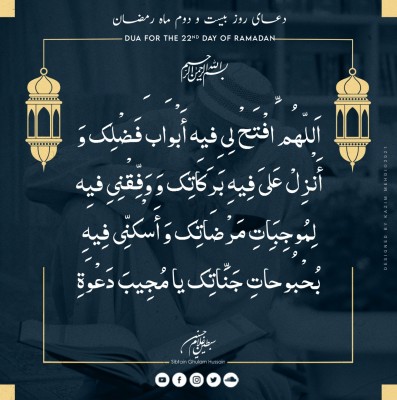 دعای روز بیست و دوم ماه رمضان
DUA FOR THE 22ND DAY OF RAMADAN
بسم الله الرحمن الرحیم
اَللّهُمَّ افْتَحْ لِی فِیهِ أَبْوَابَ فَضْلِکَ وَ
أَنْزِلْ عَلَیَّ فِیهِ بَرَکَاتِکَ وَ وَفِّقْنِی فِیهِ
لِمُوجِبَاتِ مَرْضَاتِکَ وَ أَسْکِنِّی فِیهِ
بُحْبُوحَاتِ جَنَّاتِکَ یا مُجِیبَ دَعْوَةِ
Sibtain Ghulam Hussain
DESIGNED BY KAZIM MEHDI©2021